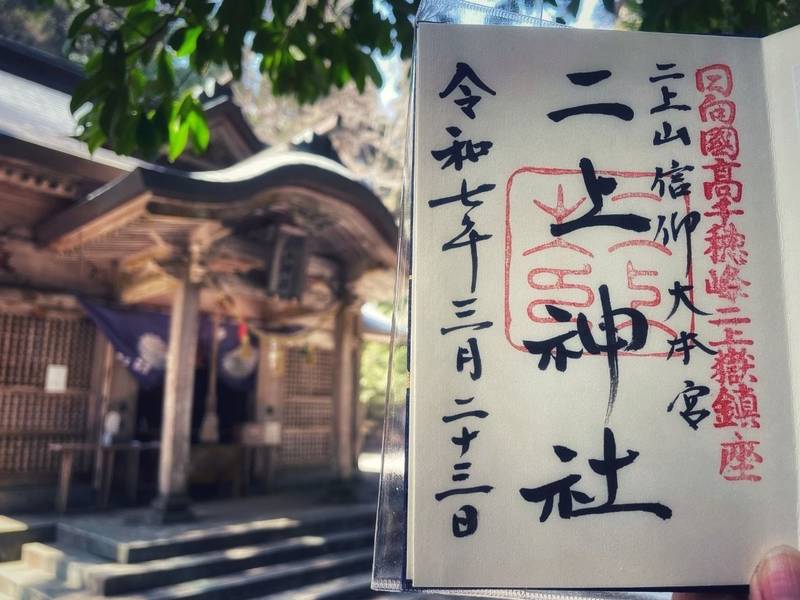 日向國高千穂峰二上嶽鎮座
二上山信仰大本宮
二上神社
令和七年三月二十三日